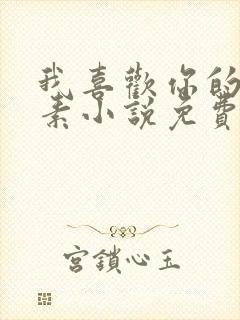 我喜歡你的
素小説免費
宮鎖心玉